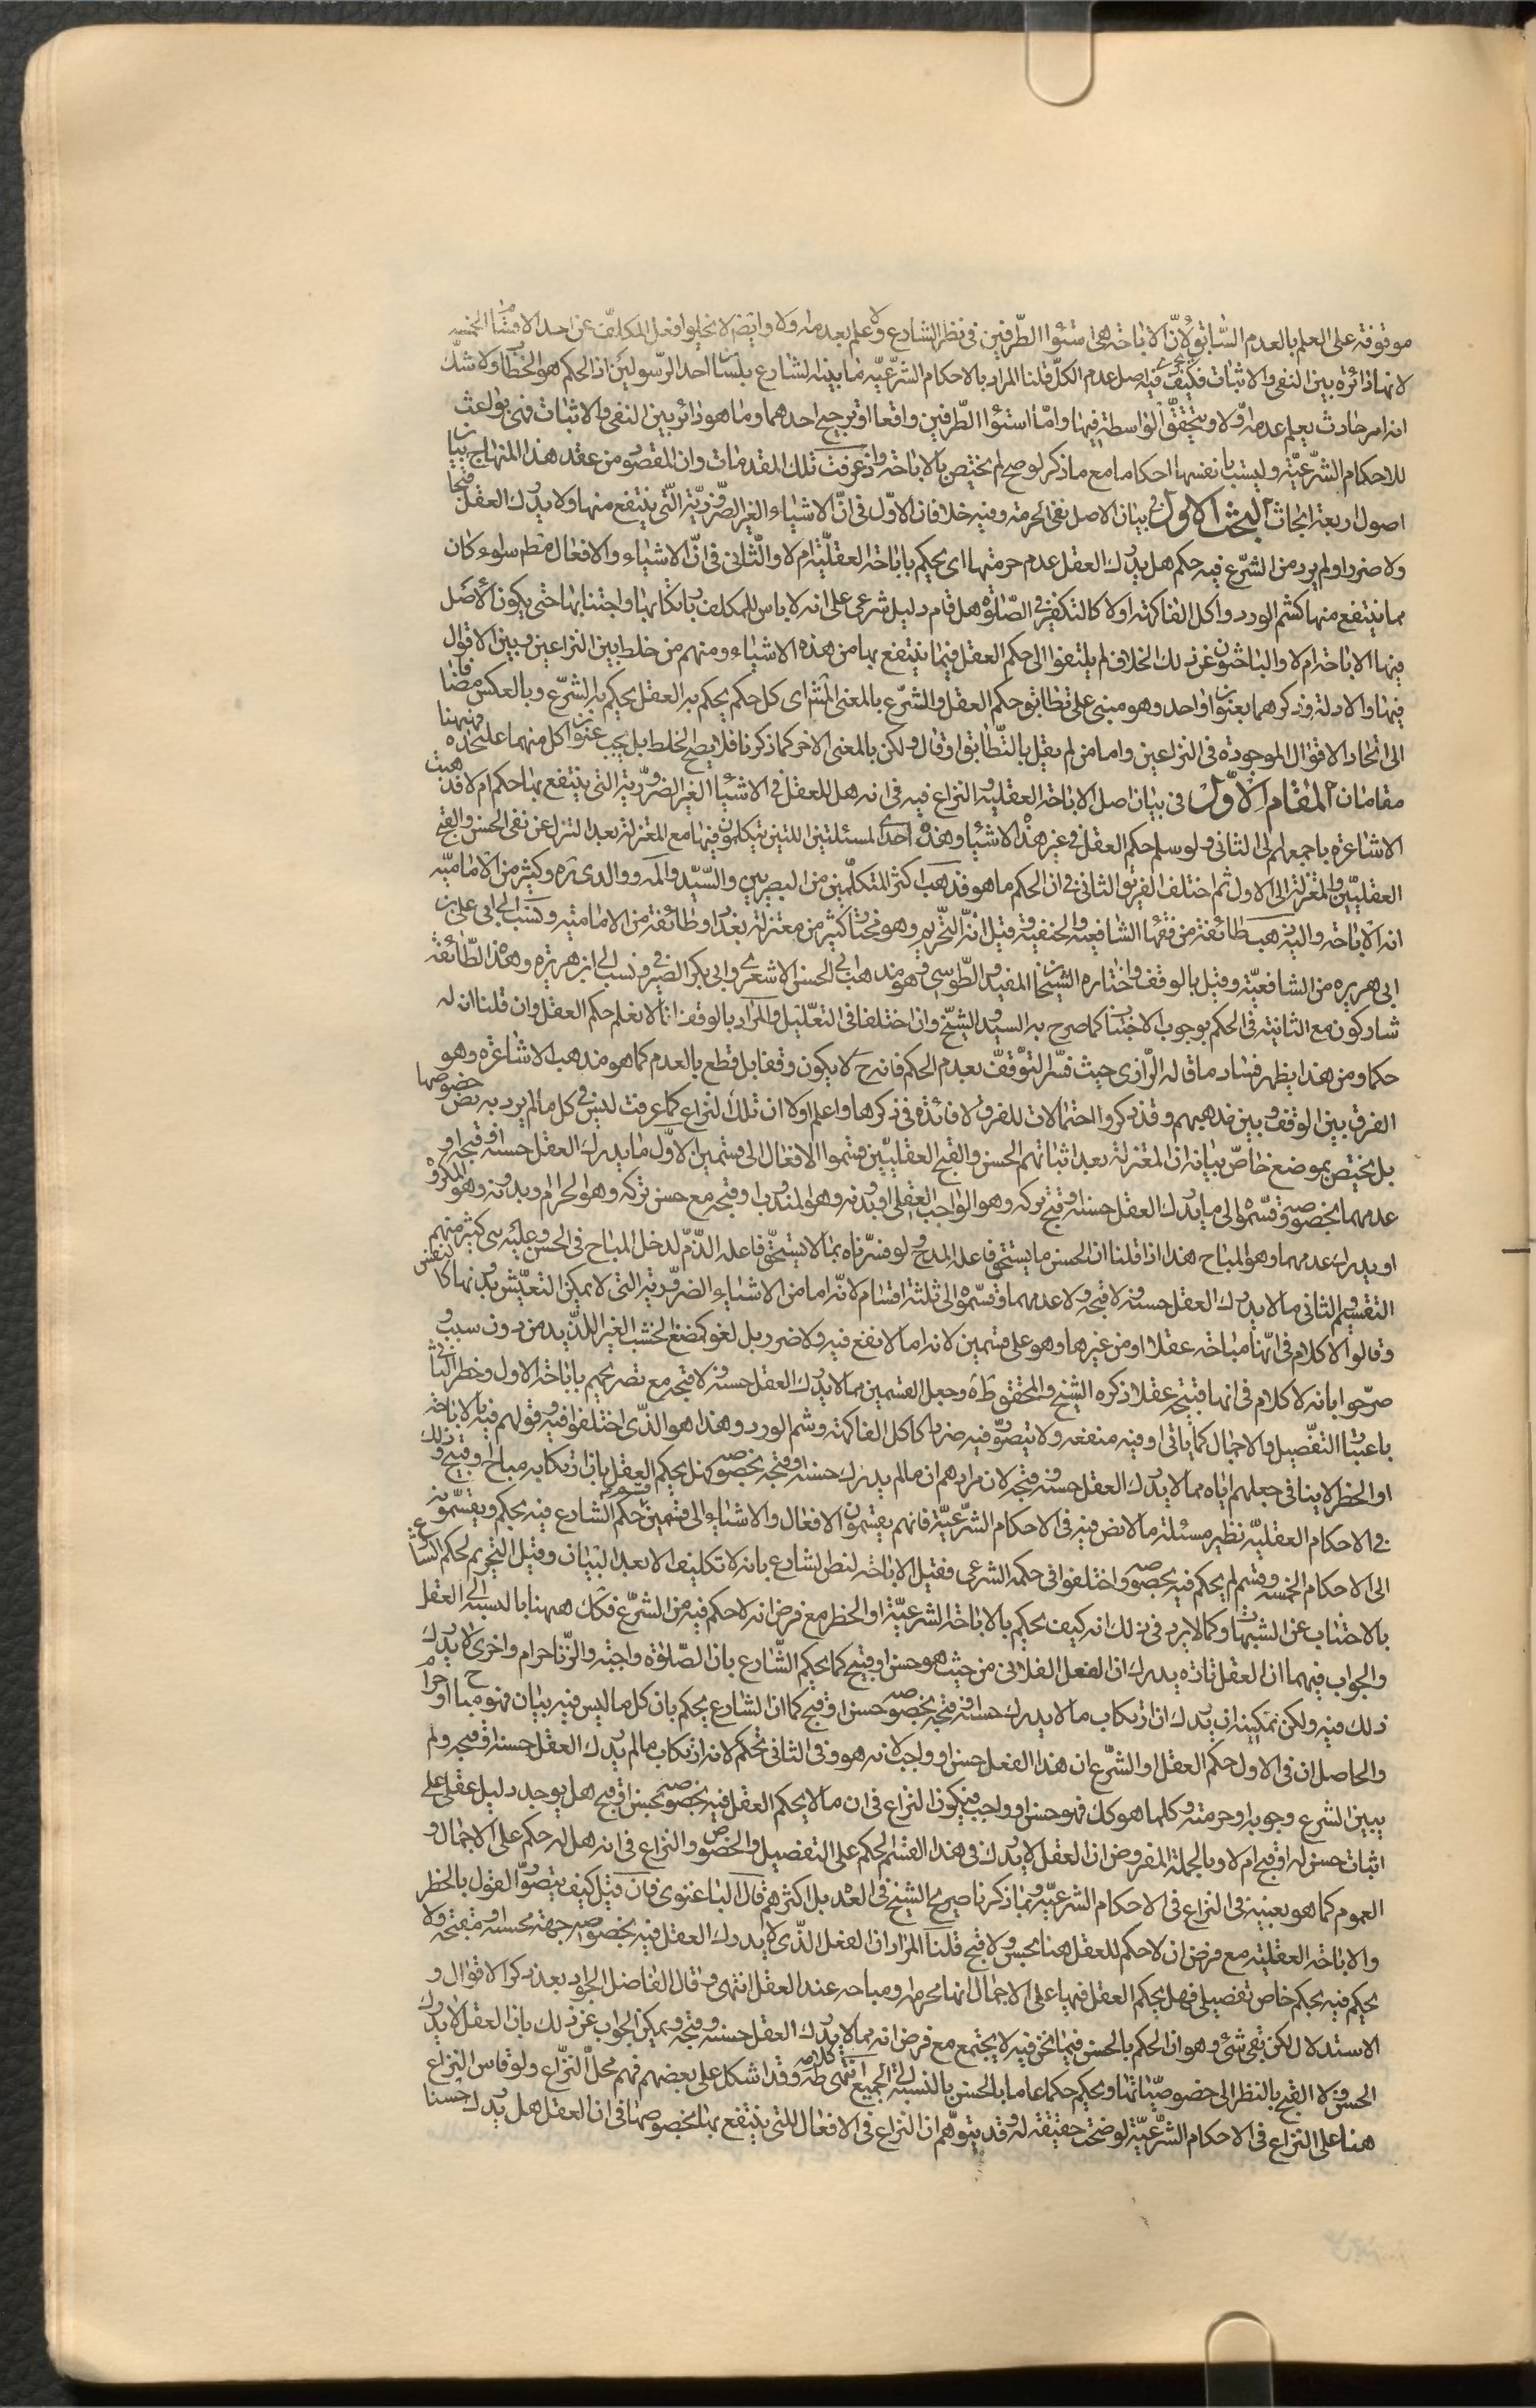 موقوفة على العلم بالعدم السابق لان الاباحة هى استواء الطرفين فى نظر الشارع ولا علم بعدمه اولا وايض لا يخلوا فعل المكلف عن احد الاقسام الخمسه
لانها دائرة بين النفى والاثبات فكيف يجرى فيه اصل عدم الكل قلنا المراد بالاحكام الشرعيّة ما بينه الشارع بلسان احد الرسولين اذ الحكم هو الخطاب ولا شك
انه امر حادث يعلم عدمه اولا ويتحقق الواسطة فيها واما استواء الطرفين واقعا او ترجيح احدهما وما هو دائر بين النفى والاثبات فهى بواعث
للاحكام الشرعيّة وليست بانفسها احكاما مع ما ذكر لو صح لم يختص بالاباحة واذ عرفت تلك المقدمات وان المقصود من عقد هذا المنهاج بيان
اصول اربعة ابحاث البحث الاول فى بيان الاصل نفى الحرمة وفيه خلافان الاوّل فى انّ الاشياء الغير الضروريّة الّتى ينتفع منها ولا يدرك العقل قبحا
ولا ضررا ولم يرد من الشرع فيه حكم هل يدرك العقل عدم حرمتها اى يحكم باباحة العقليّة ام لا والثانى فى انّ الاشياء والافعال مطم سواء كان
مما ينتفع منها كشم الورد واكل الفاكهة اولا كالتكفير فى الصلوة هل قام دليل شرعى على انه لا باس للمكلف بارتكابها واجتنابها حتى يكون الاصل
فيها الاباحة ام لا والباحثون عن ذلك الخلاف لم يلتفوا الى حكم العقل فيما ينتفع بها من هذه الاشياء ومنهم من خلط بين النزاعين وبين الاقوال
فيها والادلة وذكرهما بعنوان واحد وهو مبنى على تطابق حكم العقل والشرع بالمعنى المش اى كل حكم يحكم به العقل يحكم به الشرع وبالعكس مضافا
الى اتحاد الاقوال الموجودة فى النزاعين واما من لم يقل بالتطابق او قال ولكن بالمعنى الاخر كما ذكرنا فلا يصح الخلط بل يجب عنوان كل منهما عليحده فهيهنا
مقامان المقام الاوّل فى بيان اصل الاباحة العقلية والنزاع فيه فى انه هل للعقل فى الاشياء الغير الضروريّة التى ينتفع بها حكم ام لا فذهبت
الاشاعرة باجمعهم الى الثانى ولو سلم حكم العقل فى غير هذه الاشياء وهذه احدى المسئلتين اللتين يتكلمون فيها مع المعتزلة بعد التنزل عن نفى الحسن والقبح
العقليّين والمعتزلة الى الاول ثم اختلف الفريق الثانى فى ان الحكم ما هو فذهب اكثر المتكلّمين من البصريين والسيّد والمه ووالدى ره وكثير من الاماميّه
انه الاباحة واليه ذهب طائفة من فقهاء الشافعية والحنفية وقيل انه التحريم وهو مختار كثير من معتزلة بغداد وطائفة من الامامية ونسب الى ابى على بن
ابى هريره من الشافعيّة وقيل بالوقف واختاره الشيخان المفيد والطوسى وهو مذهب ابى الحسن الاشعرى وابى بكر الصيرفى ونسب الى ابن هريره وهذه الطائفة
شاركون مع الثانية فى الحكم بوجوب الاجتناب كما صرح به السيد والشيخ وان اختلفا فى التعليل والمراد بالوقف انا لا نعلم حكم العقل وان قلنا ان له
حكما ومن هذا يظهر فساد ما قاله الرازى حيث فسّر التوقف بعدم الحكم فانه ح لا يكون وقفا بل قطع بالعدم كما هو مذهب الاشاعرة وهو
الفرق بين الوقف وبين مذهبهم وقد ذكروا احتمالات للفرق لا فائدة فى ذكرها واعلم اولا ان تلك النزاع كما عرفت ليس فى كل ما لم يرد به نص خصوصها
بل يختص بموضع خاصّ بيانه ان المعتزلة بعد اثباتهم الحسن والقبح العقليّين قسّموا الافعال الى قسمين الاوّل ما يدرك العقل حسنه او قبحه او
عدمهما بخصوصه وقسّموه الى ما يدرك العقل حسنه وقبح تركه وهو الواجب العقلى او بدونه وهو المندوب او قبحه مع حسن تركه وهو الحرام وبدونه وهو المكروه
او يدرك عدمهما وهو المباح هذا اذا قلنا ان الحسن ما يستحق فاعله المدح ولو فسّرناه بما لا يستحق فاعله الذم لدخل المباح فى الحسن وعليه بنى كثير منهم
التقسيم الثانى ما لا يدرك العقل حسنه ولا قبحه ولا عدمهما وقسّموه الى ثلثة اقسام لانّه اما من الاشياء الضروريّة التى لا يمكن التعيّش بدونها كالتنفس
وقالوا لا كلام فى انّها مباحة عقلا او من غيرها وهو على قسمين لانه اما لا نفع فيه ولا ضرر بل لغو كمضغ الخشب الغير اللذيذ من دون سبب و
صرّحوا بانه لا كلام فى انها قبيحة عقلا ذكره الشيخ والمحقق طاه وجعل القسمين مما لا يدرك العقل حسنه ولا قبحه مع تصريحهم باباحة الاول وحظر الثانى
باعتبار التفصيل والاجمال كما ياتى او فيه منفعه ولا يتصور فيه ضررا كاكل الفاكهة وشم الورد وهذا هو الذّى اختلفوا فيه وقولهم فيه بالاباحة
او الحظر لا ينافى جعلهم اياه مما لا يدرك العقل حسنه وقبحه لان مرادهم ان مالم يدرك حسنه او قبحه بخصوصه فهل يحكم العقل بان ارتكابه مباح او قبيح وذلك
فى الاحكام العقليّة نظير مسئلة ما لا نص فيه فى الاحكام الشرعيّة فانهم يقسّمون الافعال والاشياء الى قسمين قسم حكم الشارع فيه بحكم ويقسّمونه
الى الاحكام الخمسة وقسم لم يحكم فيه بخصوصه واختلفوا فى حكمه الشرعى فقيل الاباحة لنص الشارع بانه لا تكليف الا بعد البيان وقيل التحريم لحكم الشارع
بالاجتناب عن الشبهات وكما لا يرد فى ذلك انه كيف يحكم بالاباحة الشرعيّة او الحظر مع فرض انه لا حكم فيه من الشرع فكك هيهنا بالنسبة الى العقل
والجواب فيهما ان العقل تارة يدرك ان الفعل الفلانى من حيث هو حسن او قبيح كما يحكم الشارع بان الصّلوة واجبة والزّنا حرام واخرى لا يدرك
ذلك فيه ولكن يمكنه ان يدرك ان ارتكاب ما لا يدرك حسنه وقبحه بخصوصه حسن او قبيح كما ان الشارع يحكم بان كل ما ليس فيه بيان فهو مباح او حرام
والحاصل ان فى الاول حكم العقل او الشرع ان هذا الفعل حسن او واجب لانه هو وفى الثانى تحكم لانه ارتكاب ما لم يدرك العقل حسنه او قبحه ولم
يبين الشرع وجوبه او حرمته وكلما هو كك فهو حسن او واجب فيكون النزاع فى ان ما لا يحكم العقل فيه بخصوصه بحسن او قبح هل يوجد دليل عقلى على
اثبات حسن له او قبح ام لا وبالجملة المفروض ان العقل لا يدرك فى هذا القسم الحكم على التفصيل والخصوص والنزاع فى انه هل له حكم على الاجمال و
العموم كما هو بعينه فى النزاع فى الاحكام الشرعيّة وبما ذكرنا صرح الشيخ فى العدة بل اكثرهم قال الباغنوى فان قيل كيف يتصوّر القول بالحظر
والاباحة العقلية مع فرض ان لا حكم للعقل هنا بحسن ولا قبح قلنا المراد ان الفعل الذّى لا يدرك العقل فيه بخصوصه جهة محسنة او مقبحة ولا
يحكم فيه بحكم خاص تفصيلى فهل يحكم العقل فيها على الاجمال انها محرمة او مباحه عند العقل انتهى وقال الفاضل الجواد بعد ذكر الاقوال و
الاستدلال لكن بقى شئ وهو ان الحكم بالحسن فيما نحن فيه لا يجتمع مع فرض انه مما لا يدرك العقل حسنه وقبحه ويمكن الجواب عن ذلك بان العقل لا يدرك
الحسن ولا القبح بالنظر الى خصوصيّاتها ويحكم حكما عاما بالحسن بالنسبة الى الجميع انتهى كلامه طه وقد اشكل على بعضهم فهم محلّ النزاع ولو قاس النزاع
هنا على النزاع فى الاحكام الشرعيّة لوضحت حقيقته له وقد يتوهّم ان النزاع فى الافعال اللتى ينتفع بها بخصوصها فى ان العقل هل يدرك حسنا